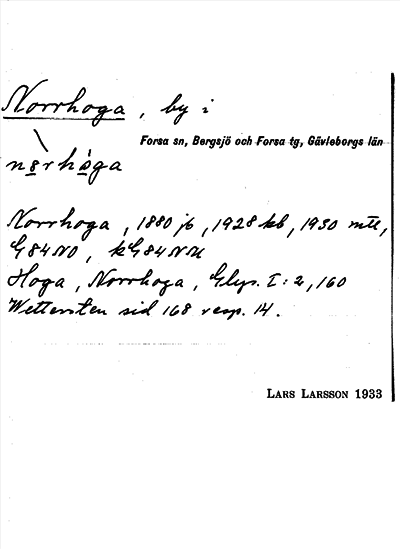 Norrhoga, by i
Forsa sn, Bergsjö och Forsa tg, Gävleborgs län
Norrhoga, 1880 jb, 1928 kb, 1930 mtl,
G84NO, kG84NM
Hoga, Norrhoga, Glys. I: 2, 160
Wettersten sid 168 resp. 14.
LARS LARSSON 1933